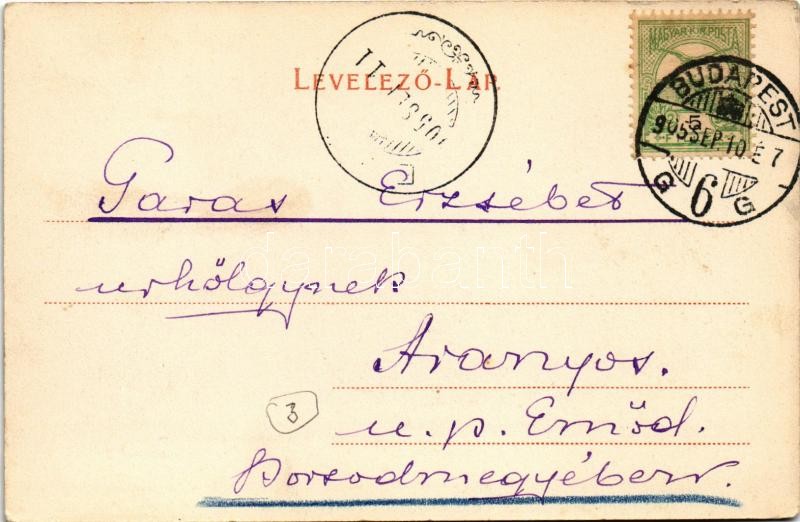 MAGYAR KIR. POSTA
LEVELEZŐ-LAP.
BUDAPEST
5
905 SEP. 10. É 7
G 6 G
905 SEP 11
Garas Erzsébet
urhölgynek
Aranyos.
u. p. Emőd.
Borsodmegyében.
3
darabanth